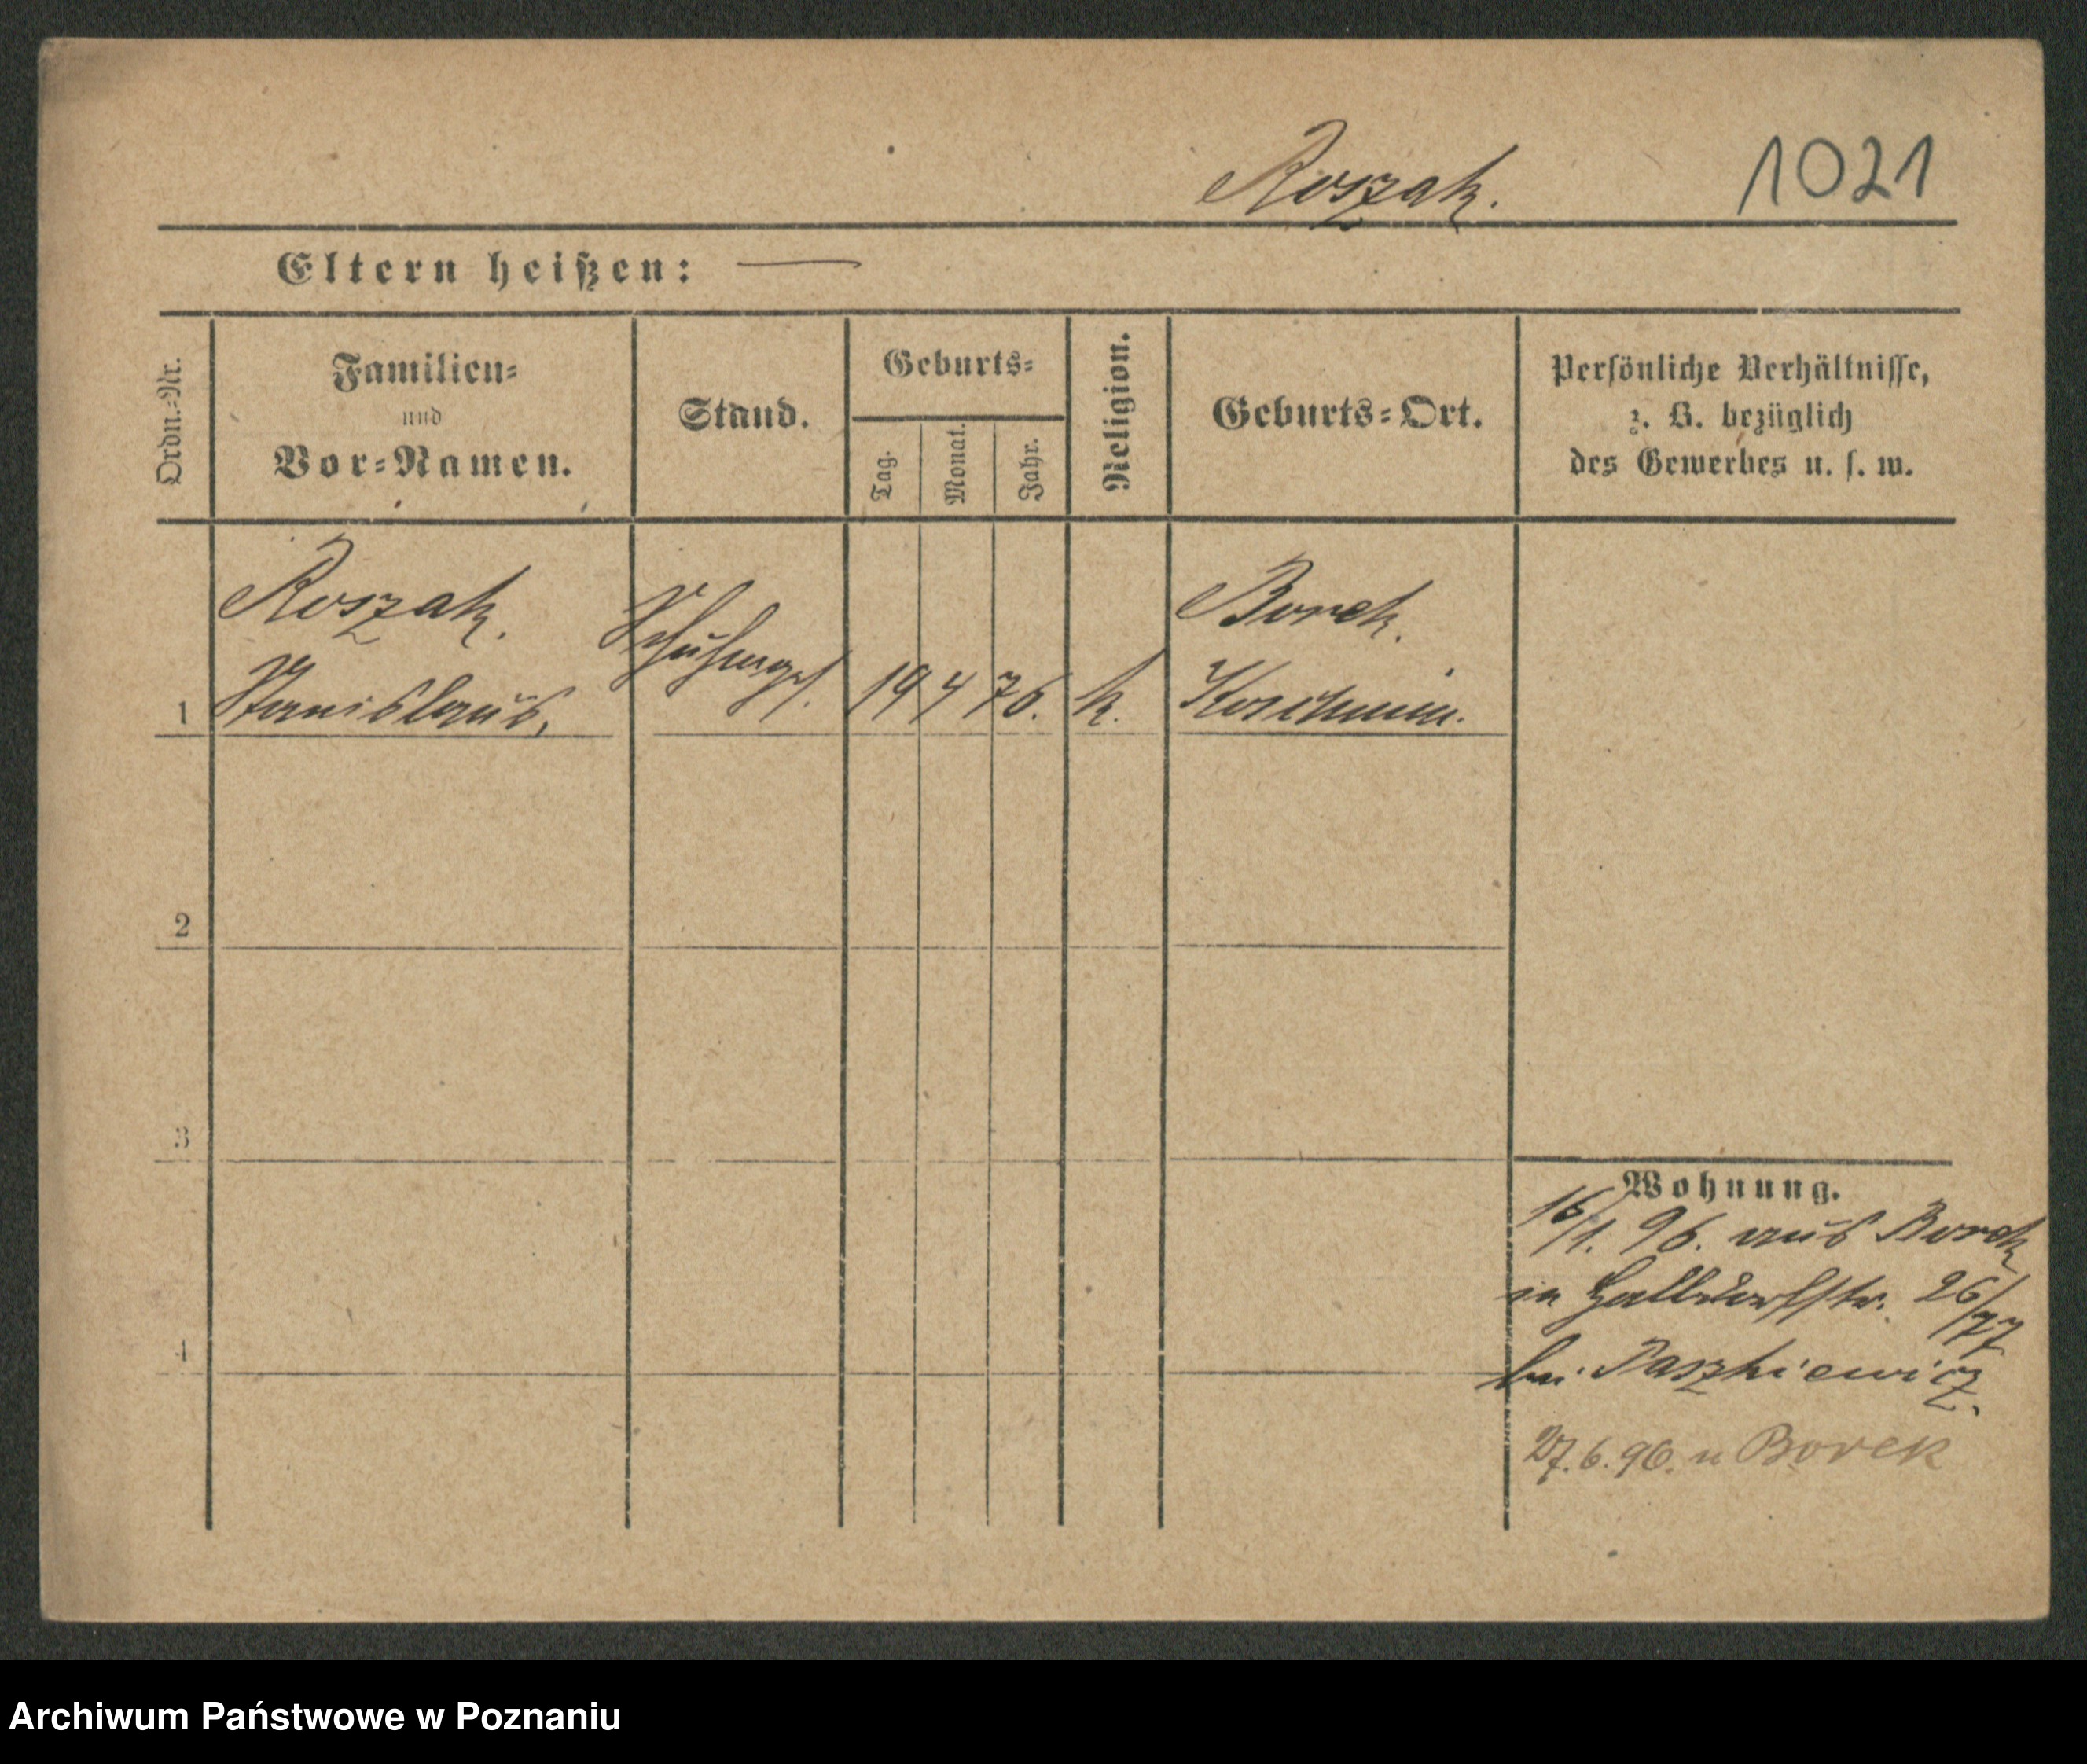 Roszak. 1021
Eltern heißen: —
Ordn.-Nr.
Familien-
und
Vor-Namen.
Stand.
Geburts-
Tag.
Monat.
Jahr.
Religion.
Geburts-Ort.
Persönliche Verhältnisse,
z. B. bezüglich
des Gewerbes u. s. w.
Roszak. Borek.
1 Stanislaus, Schuhmges. 19 4 76. k. Koschmin.
2
3
4
Wohnung.
16/1. 96. aus Borek
in Halbdorfstr. 26/27
bei Paszkiewicz.
27.6.96. n Borek
Archiwum Państwowe w Poznaniu